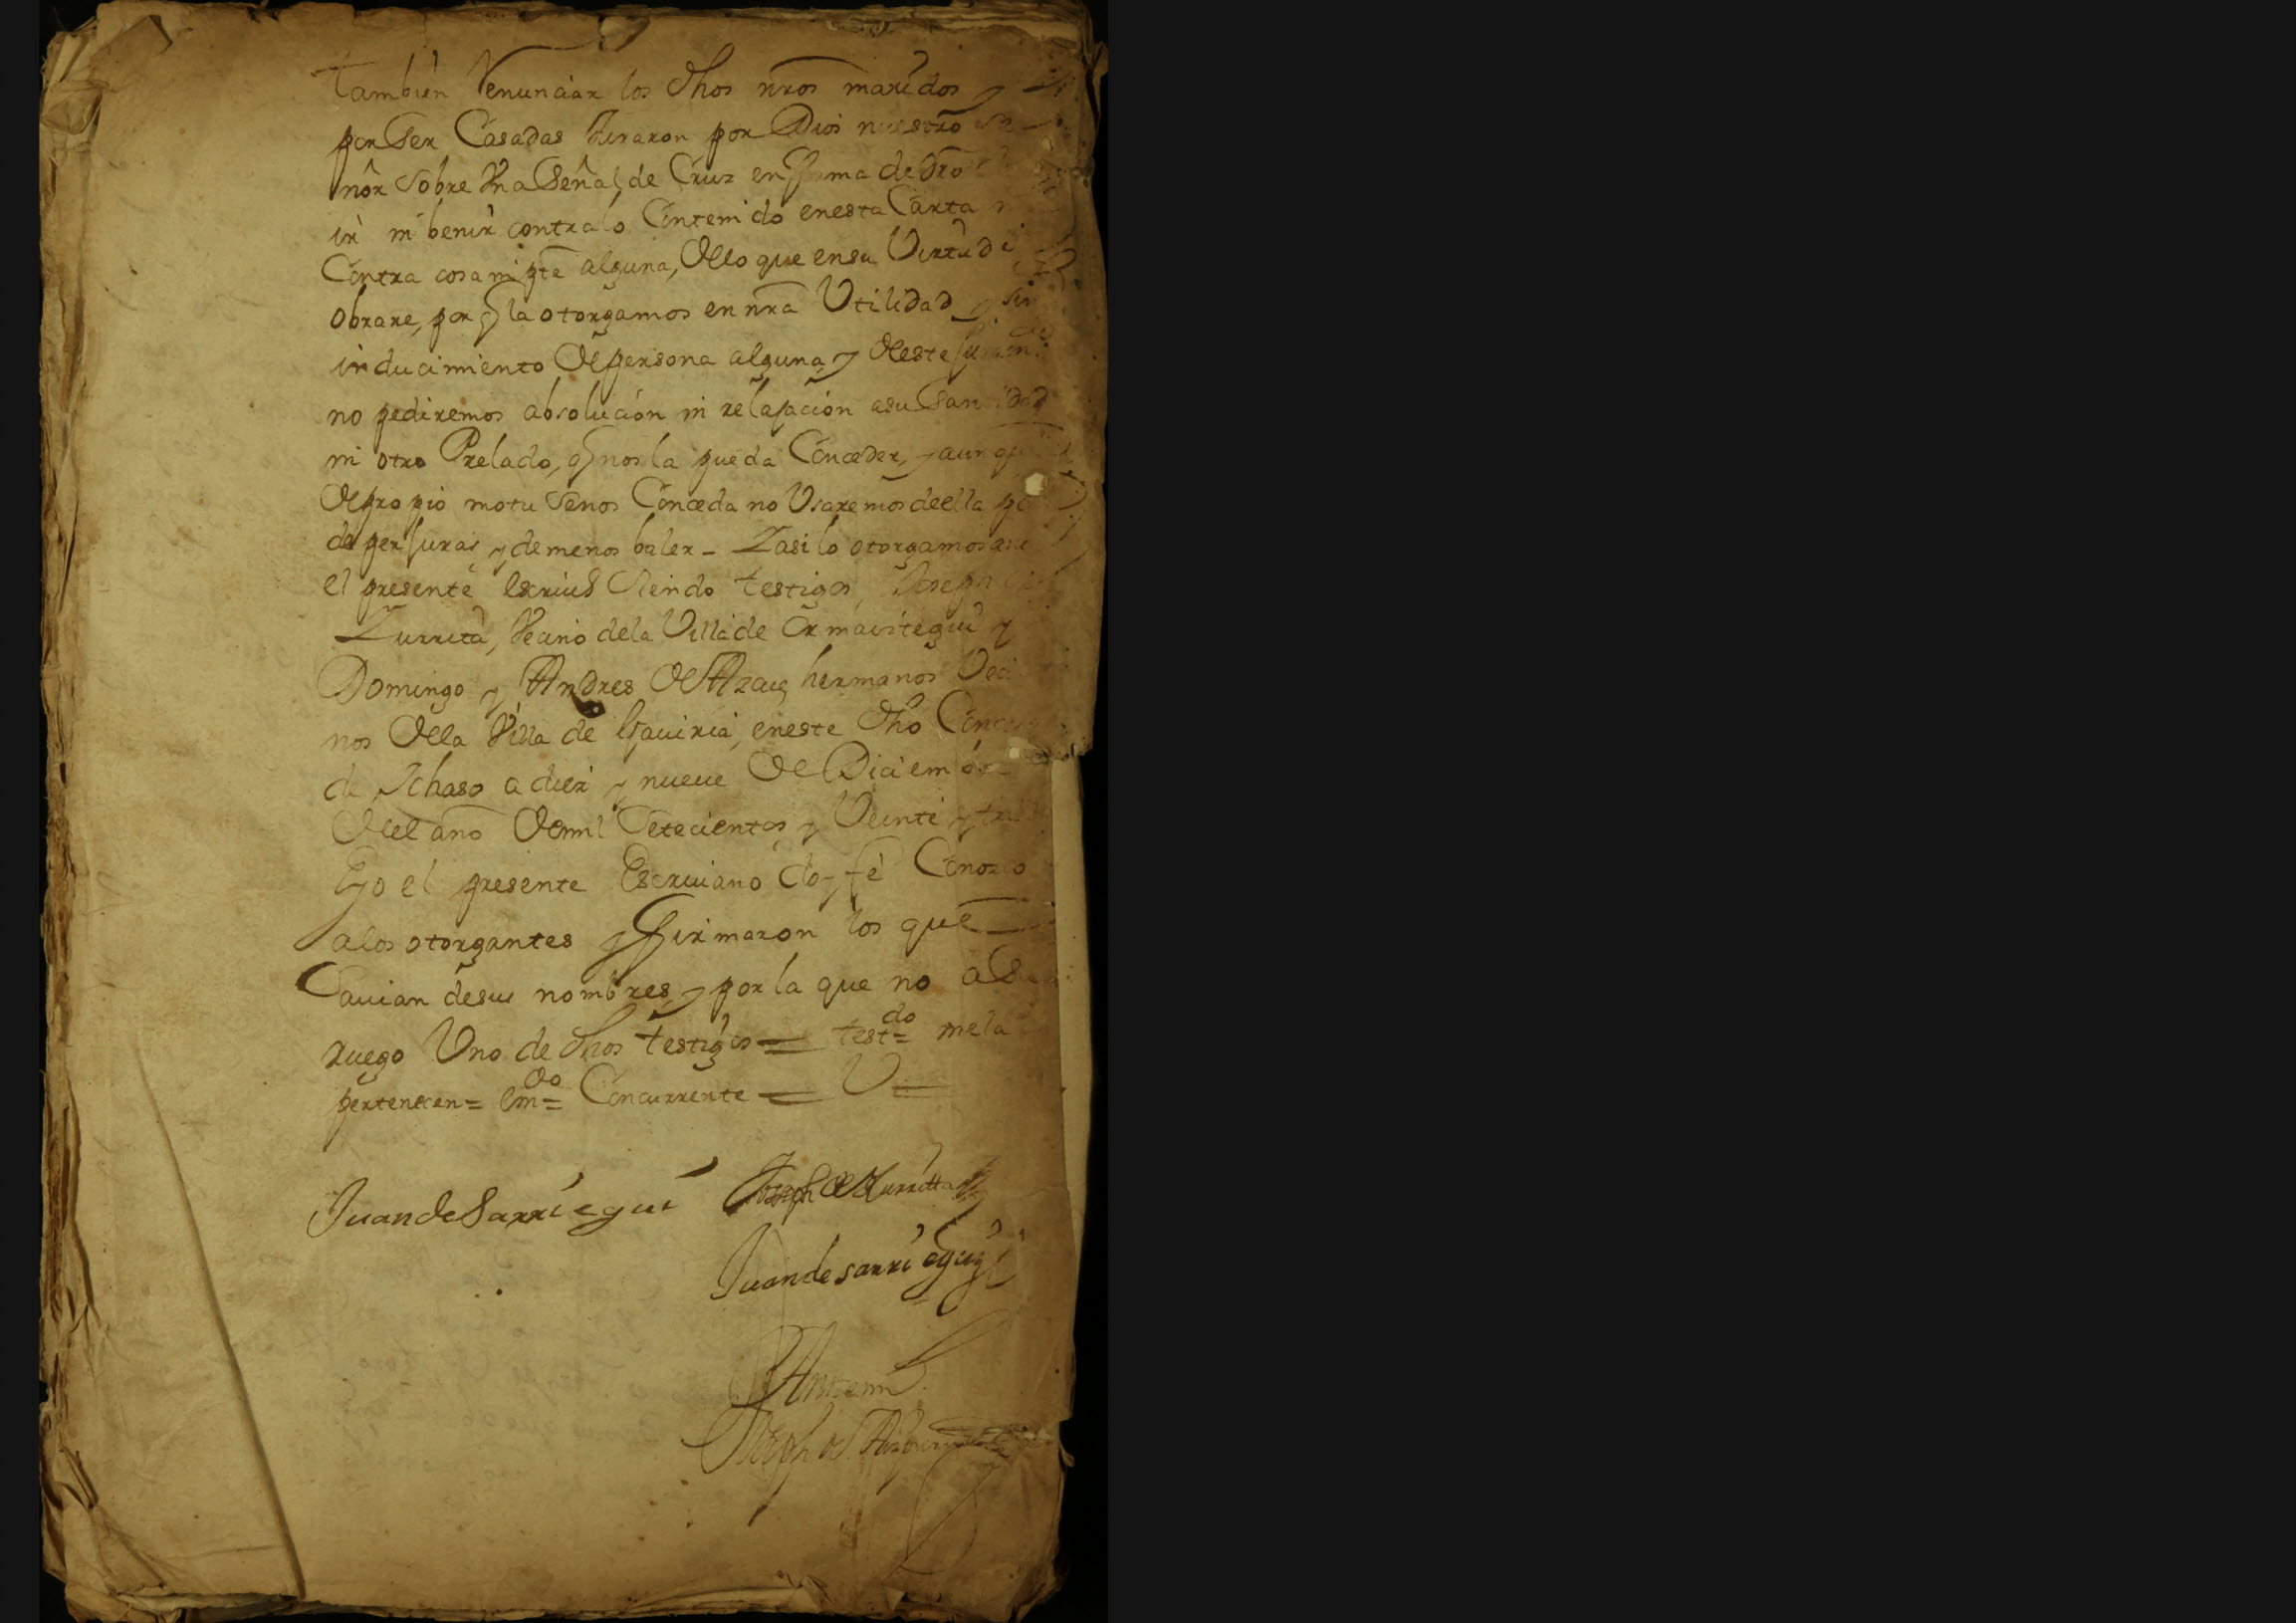 tambien Renunciar los dhos nros maridos y
por Ser Casadas Juraron por Dios nuestro
nor sobre Vna Señal de Cruz en forma de dro
ir ni benir contra lo Contenido en esta Carta
Contra cosa ni pte alguna, de lo que en su Virtud
obrare, por q la otorgamos en nra Utilidad y sin
inducimiento de persona alguna y deste
no pediremos absolución ni relajación a su Santidad
ni otro Prelado, q nos la pueda Conceder, y aunque
de propio motu Se nos Conceda no Usaremos de ella
de perjuras y de menos baler - Y asi lo otorgamos
el presente escriuo Siendo testigos, Joseph
Zurrita, Vecino de la Villa de Ormaistegui y
Domingo y Andres de Azaue hermanos Veci
nos de la Villa de Gauiria, en este dho
de Ichaso a diez y nueue de Diciembre
del año de mil Setecientos y Veinte y
Yo el presente Escriuano doy fe Conozco
a los otorgantes y firmaron los que
Sauian de sus nombres, y por la que no a S
ruego Uno de dhos testigos = testdo= me la
pertenecen = emdo= Concurrente = V =
Juan de Sarriegui Joseph de Zurritta
Juan de sarriegui
Ante mi
Joseph de